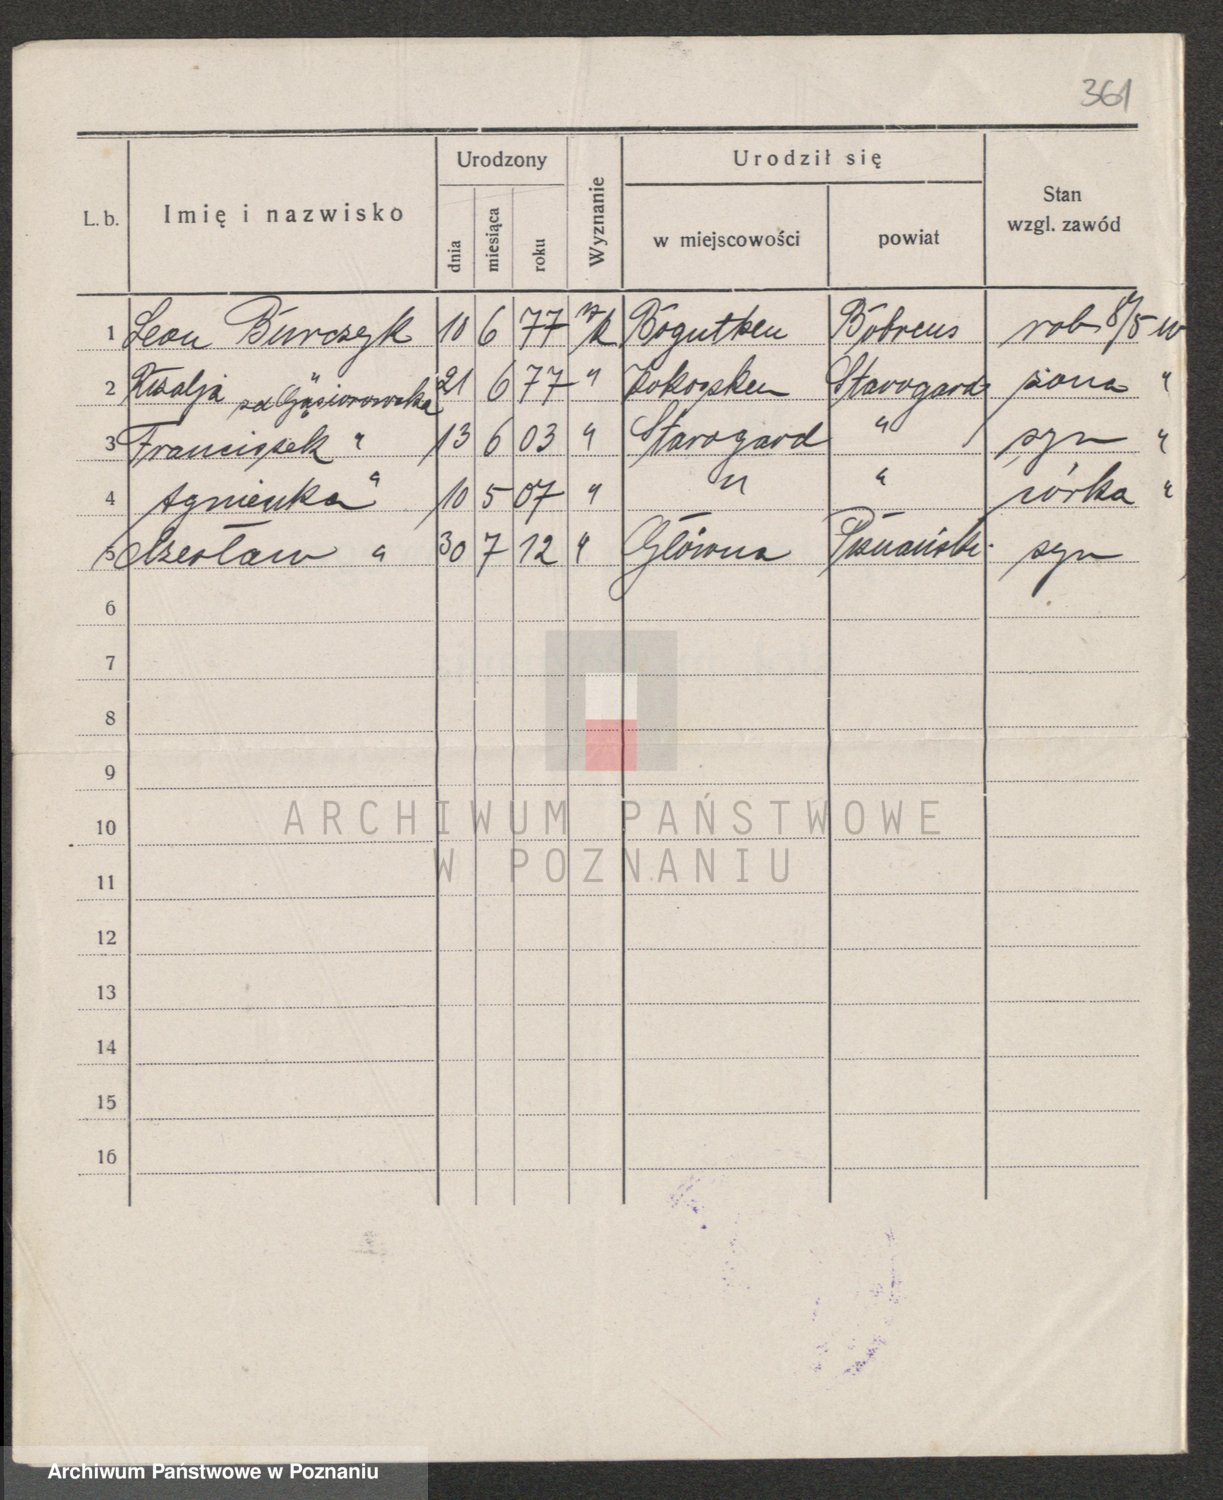 361
L. b. Imię i nazwisko Urodzony Wyznanie Urodził się Stan wzgl. zawód
dnia miesiąca roku w miejscowości powiat
1 Leon Burczyk 10 6 77 rz/k Bogutken rob.
2 zd Gąsiorowska 21 6 77 " Starogard żona "
3 Franciszek " 13 6 03 " Starogard " syn "
4 Agnieszka " 10 5 07 " " " córka "
5 Czesław " 30 7 12 " Główna Poznański syn
6
7
8
9
10
11
12
13
14
15
16
ARCHIWUM PAŃSTWOWE
W POZNANIU
Archiwum Państwowe w Poznaniu